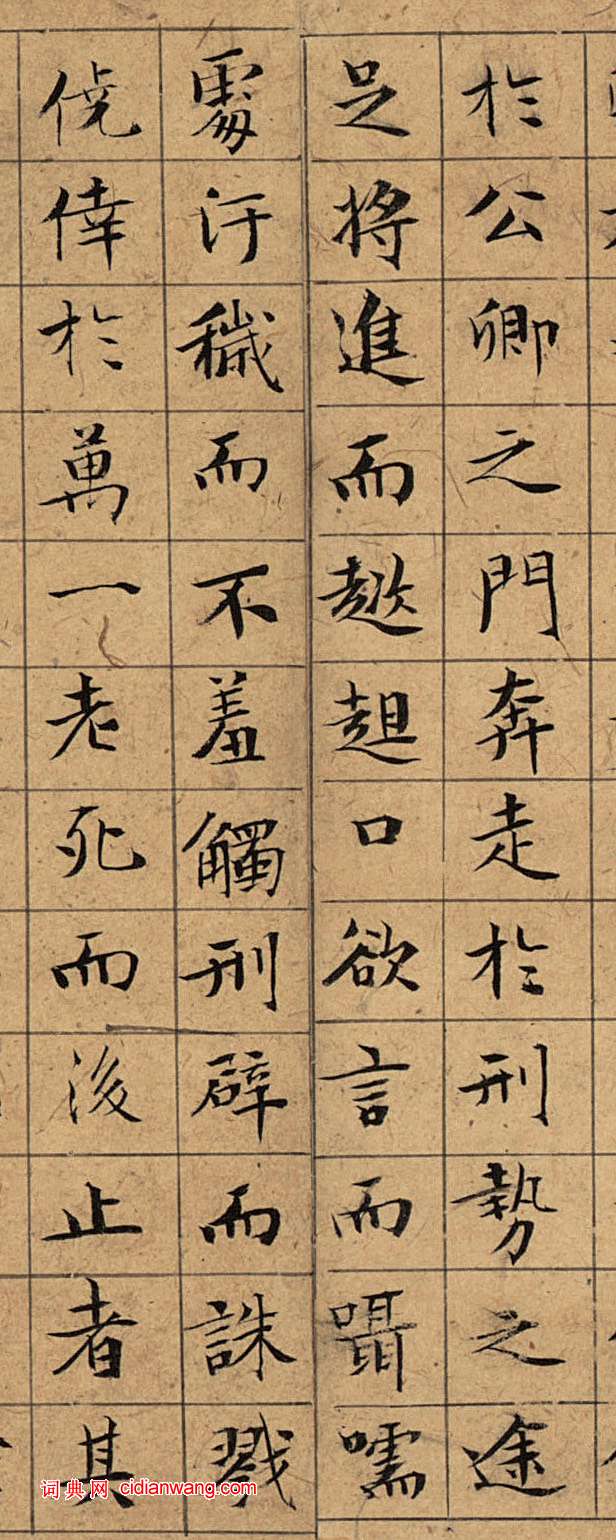 於公卿之門奔走於刑勢之途
足將進而趑趄口欲言而囁嚅
處汙穢而不羞觸刑辟而誅戮
僥倖於萬一老死而後止者其
词典网 cidianwang.com